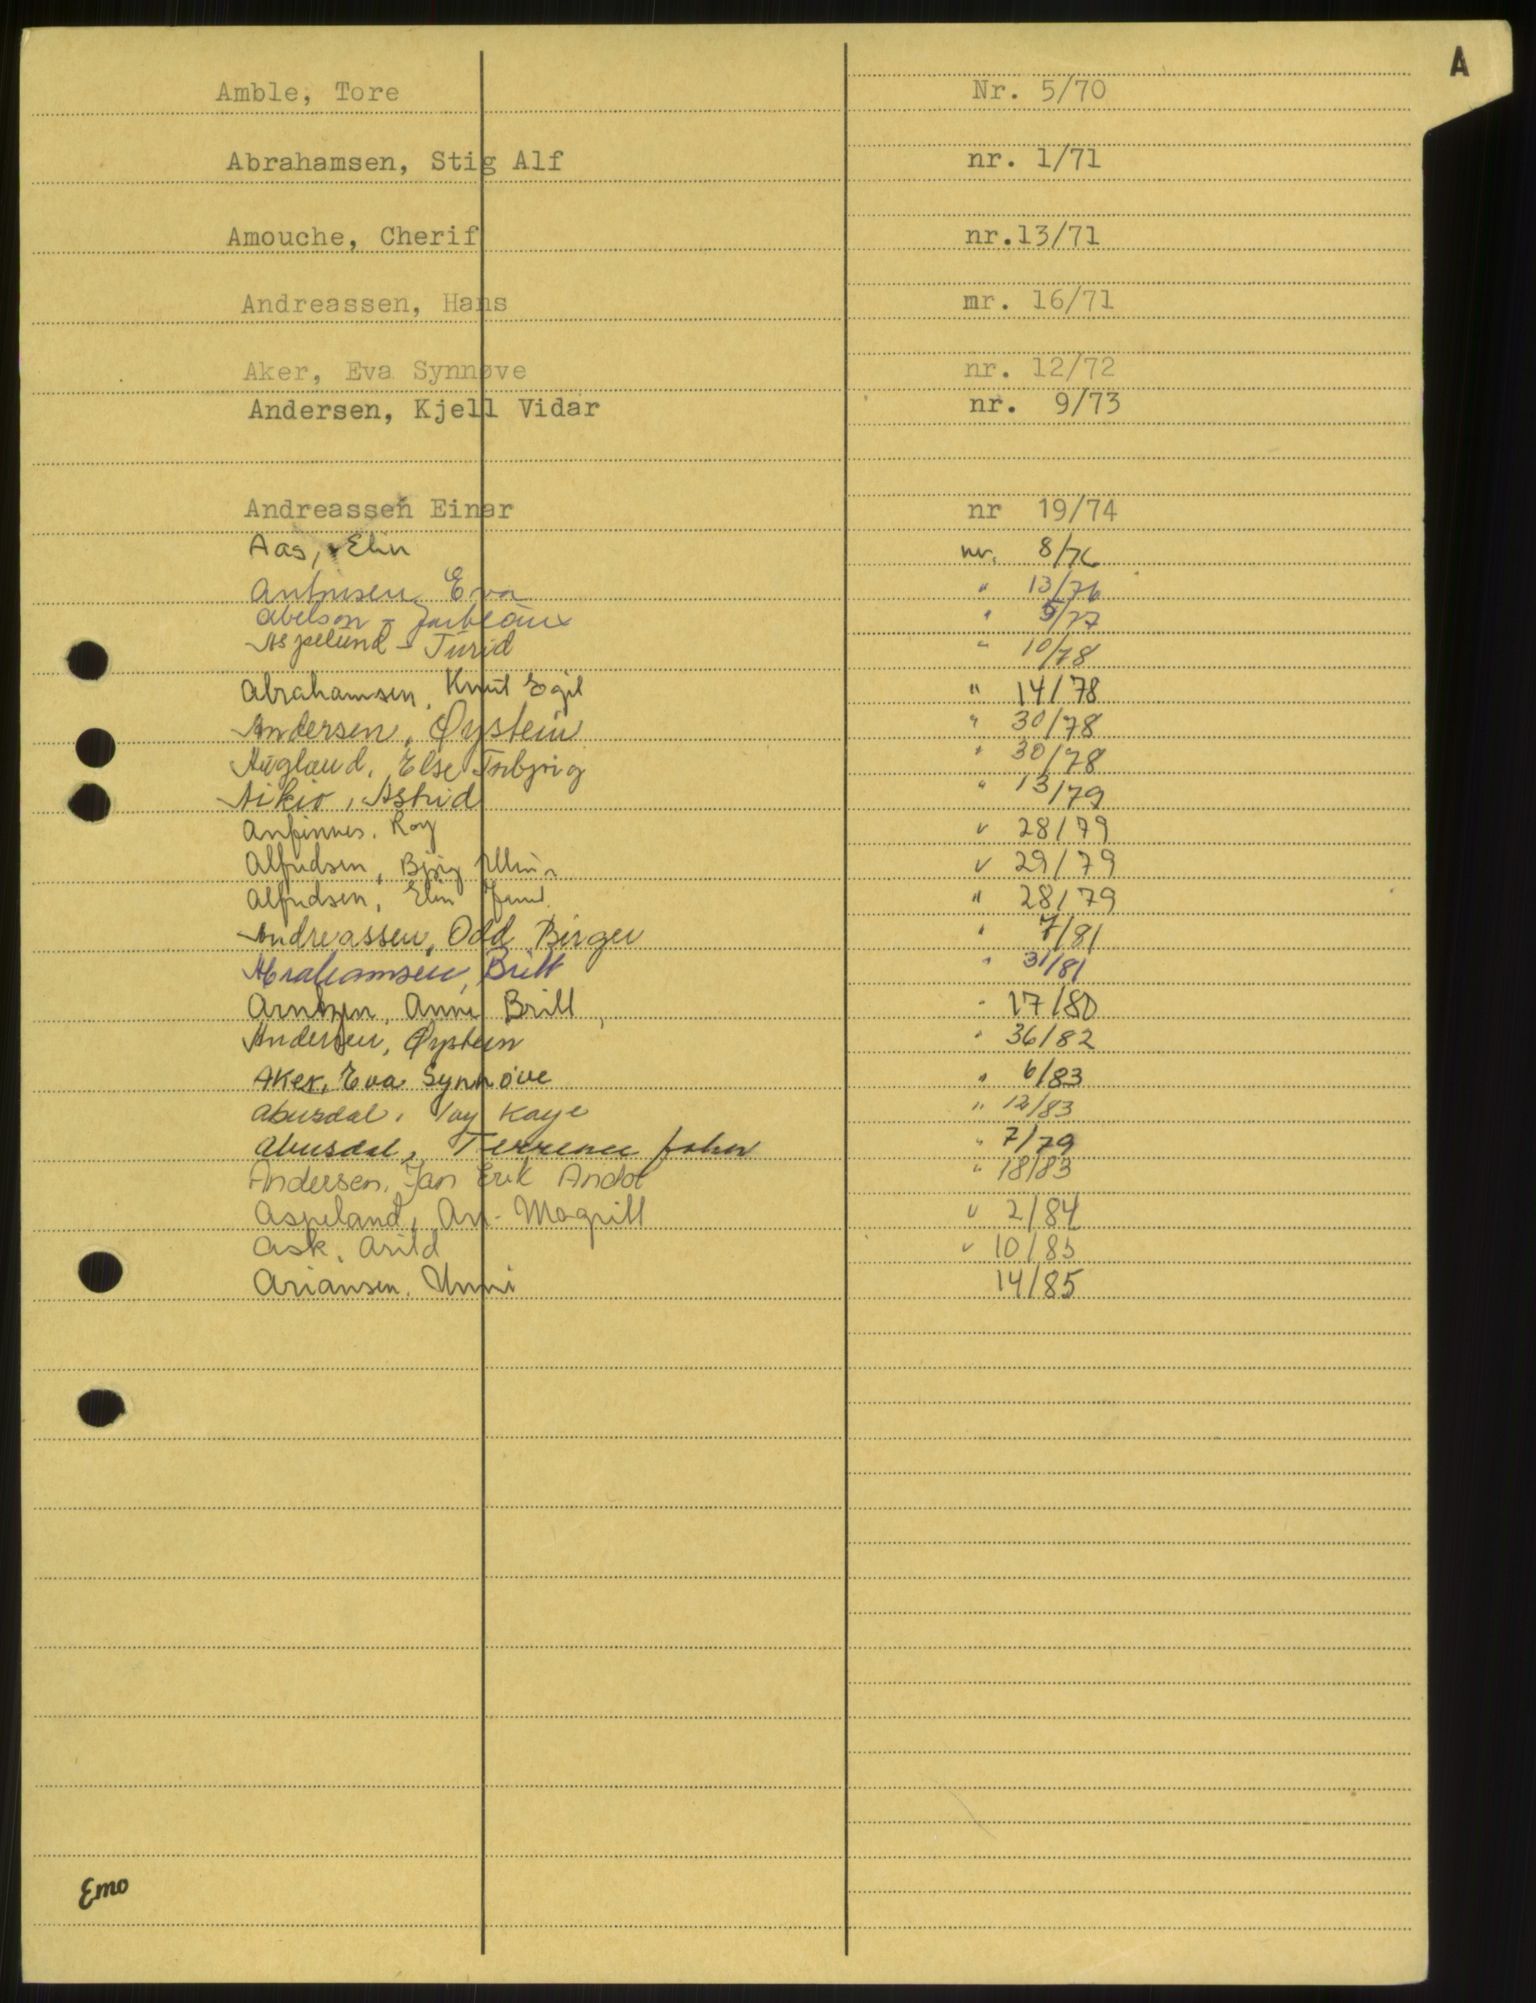 A
Amble, Tore Nr. 5/70
Abrahamsen, Stig Alf nr. 1/71
Amouche, Cherif nr.13/71
Andreassen, Hans mr. 16/71
Aker, Eva Synnøve nr. 12/72
Andersen, Kjell Vidar nr. 9/73
Andreassen Einar nr 19/74
Aas, Elin nr. 8/76
Antonsen, Eva " 13/76
Abelson - " 5/77
Aspelund - Turid " 10/78
Abrahamsen, Knut Egil " 14/78
Andersen, Øystein " 30/78
Augland, Else Torbjørg " 30/78
Aikio, Astrid " 13/79
Anfinnes, Roy " 28/79
Alfredsen, Bjørg " 29/79
Alfredsen, Elin " 28/79
Andreassen, Odd Birger " 7/81
Abrahamsen, Britt " 31/81
Arntzen, Anne Britt, " 17/80
Andersen, Øystein " 36/82
Aker, Eva Synnøve " 6/83
Abusdal, Kaye " 12/83
Abusdal, Terrence John " 7/79
Andersen, Jan Erik Andor " 18/83
Aspeland, An- Magritt " 2/84
Ask, Arild " 10/85
Ariansen, Unni 14/85
Emo